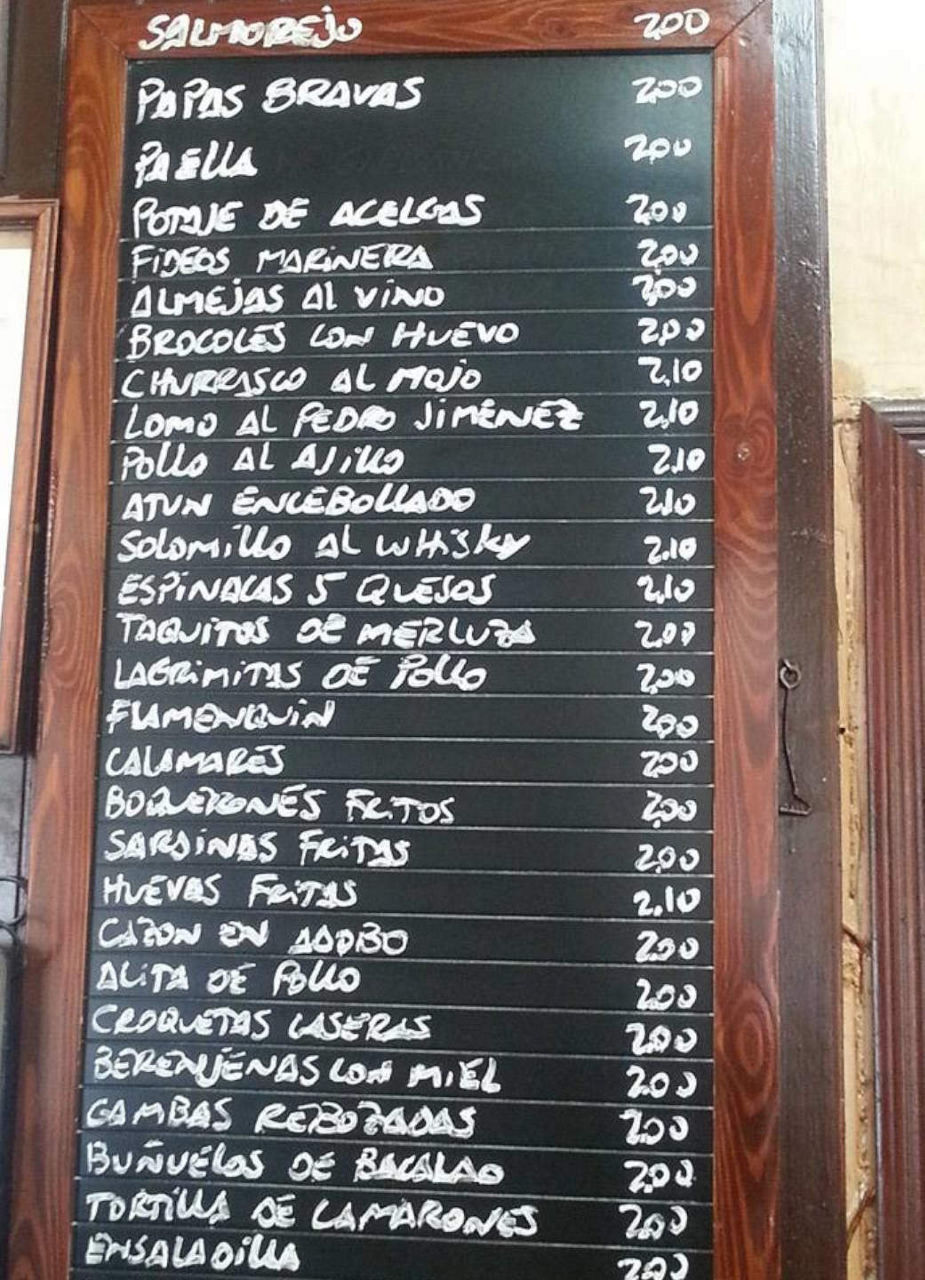 SALMOREJO 2,00
PAPAS BRAVAS 2,00
PAELLA 2,00
POTAJE DE ACELGAS 2,00
FIDEOS MARINERA 2,00
ALMEJAS Al VINO 2,00
BROCOLES CON HUEVO 2,00
CHURRASCO AL MOJO 2,10
LOMO AL PEDRO JIMÉNEZ 2,10
POLLO AL AJILLO 2,10
ATUN ENCEBOLLADO 2,10
SOLOMILLO AL WHISKY 2,10
ESPINACAS 5 QUESOS 2,10
TAQUITOS DE MERLUZA 2,00
LAGRIMITAS DE POLLO 2,00
FLAMENQUIN 2,00
CALAMARES 2,00
BOQUERONES FRITOS 2,00
SARDINAS FRITAS 2,00
HUEVAS FRITAS 2,10
CAZON EN ADOBO 2,00
ALITA DE POLLO 2,00
CROQUETAS CASERAS 2,00
BERENJENAS CON MIEL 2,00
GAMBAS REBOZADAS 2,00
BUÑUELOS DE BACALAO 2,00
TORTILLA DE CAMARONES 2,00
ENSALADILLA 2,00